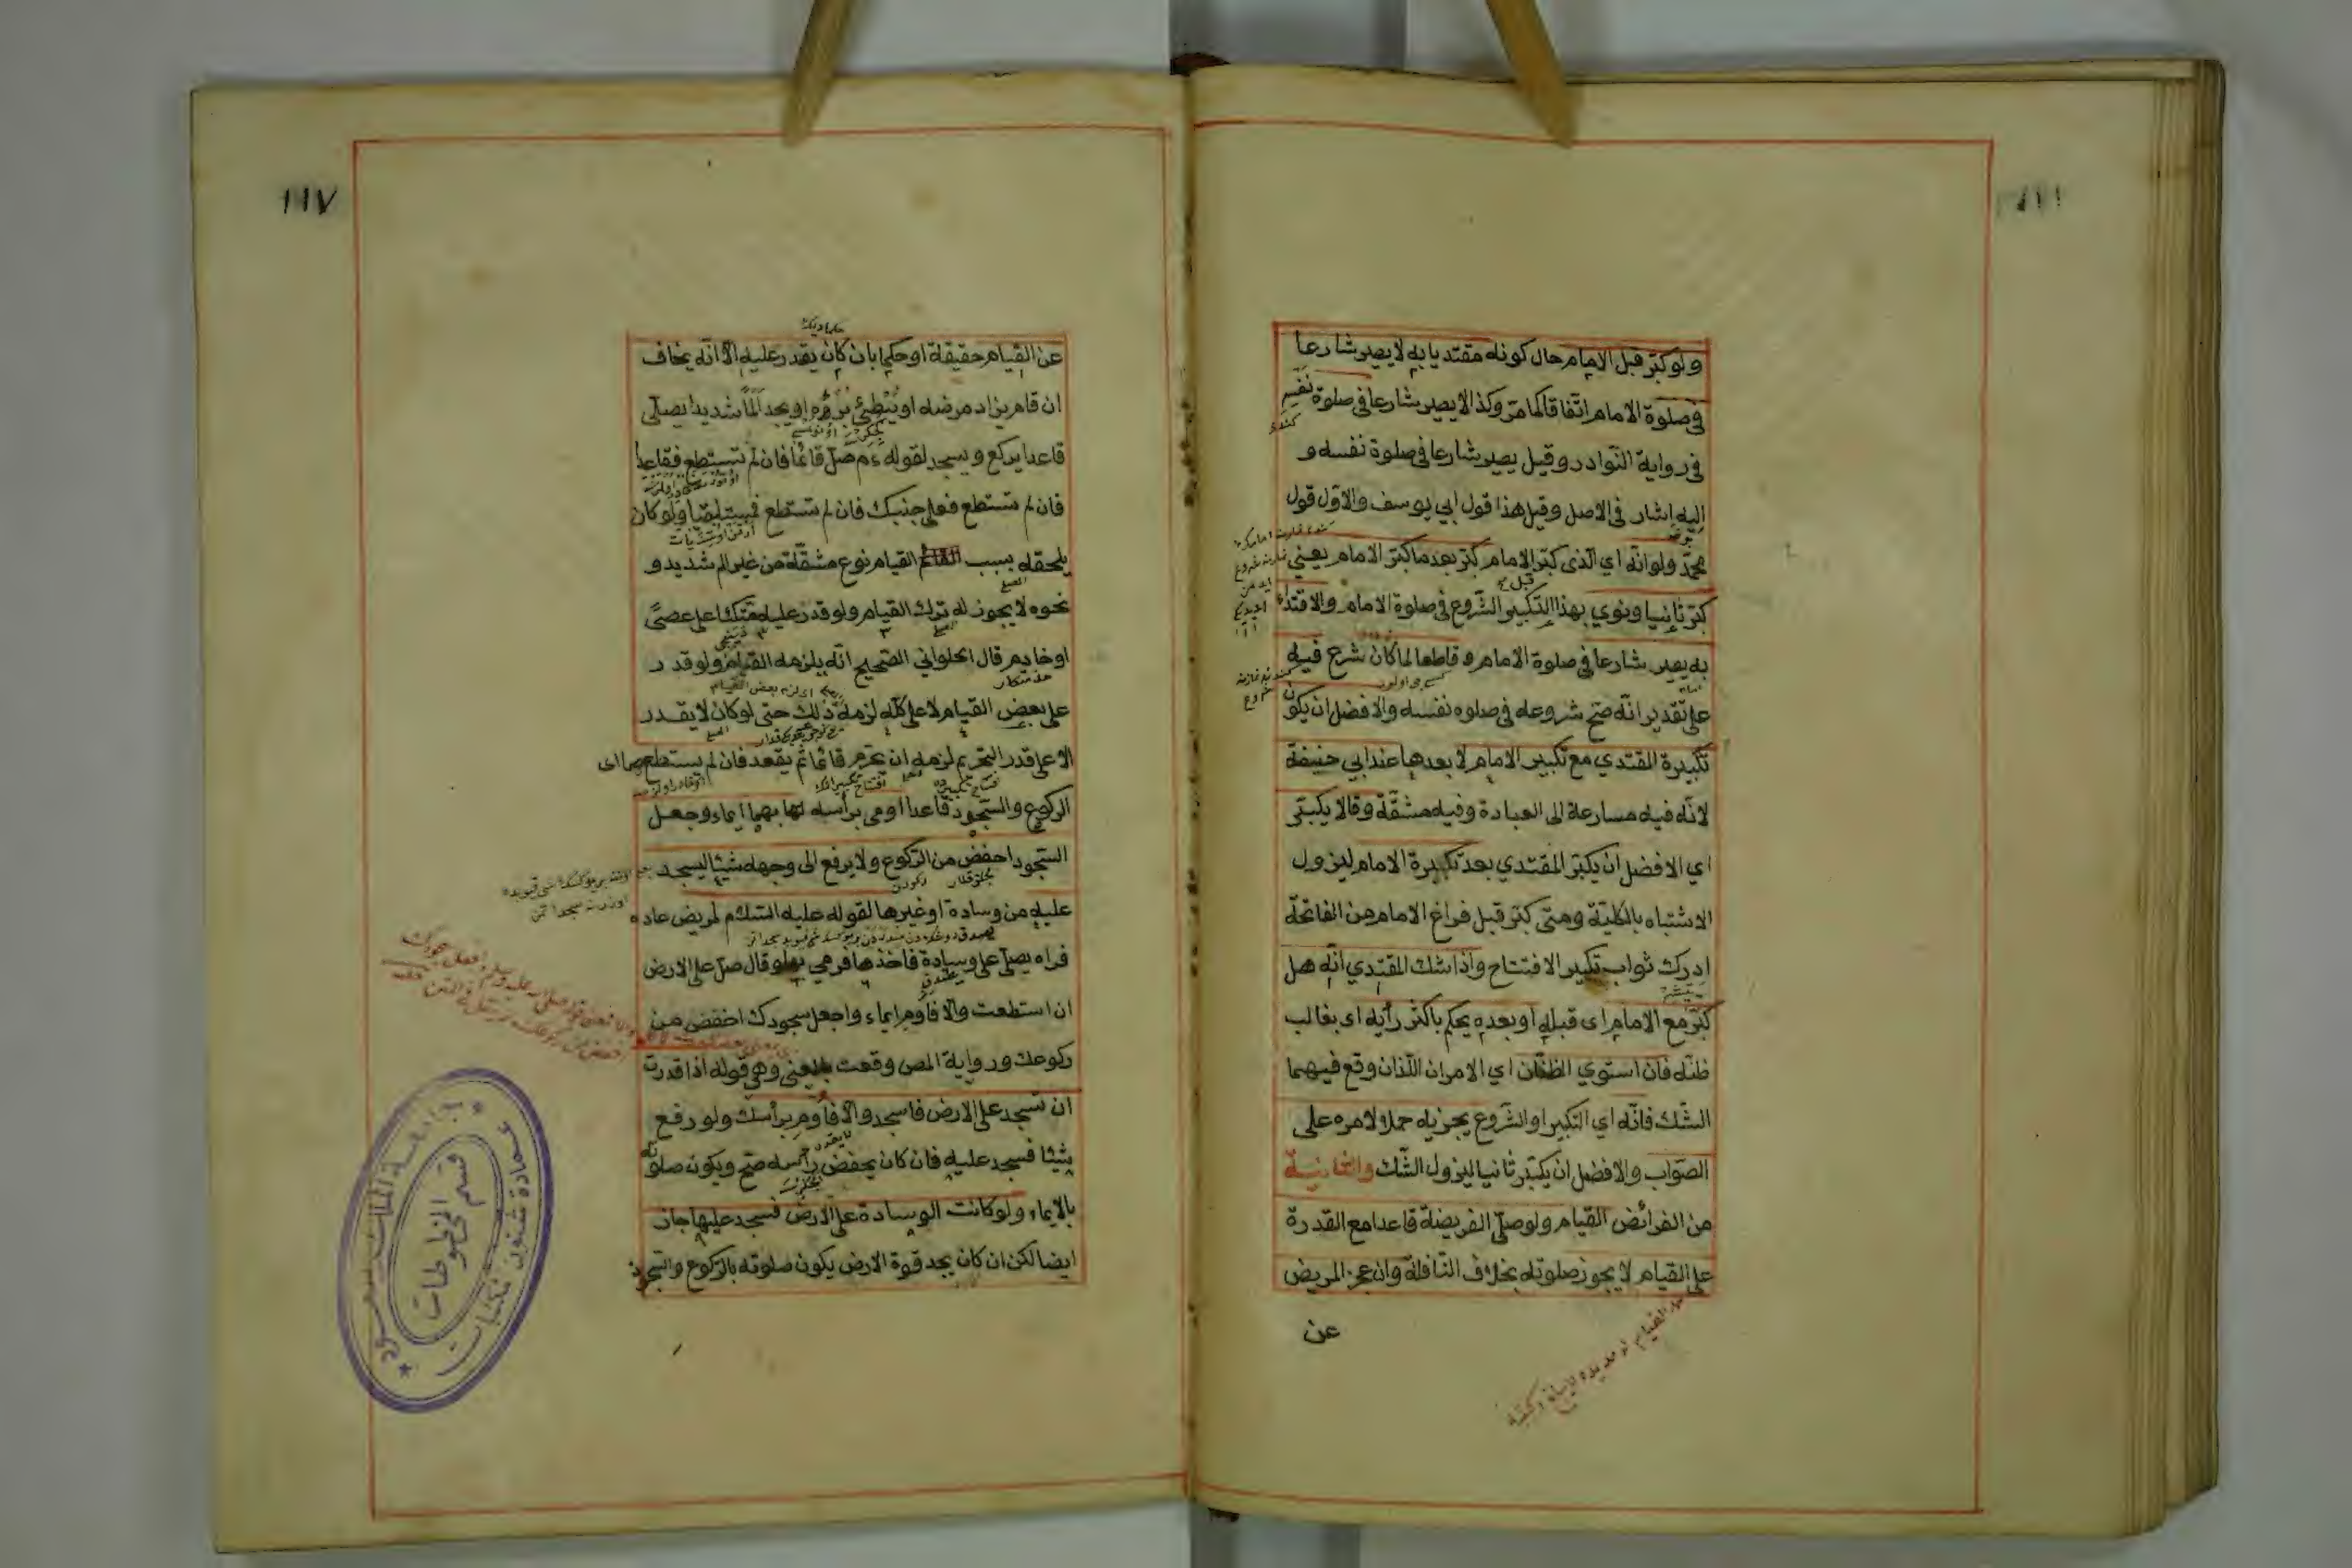 ولو كبّر قبل الامام حال كونه مقتديا به لا يصير شارعا
في صلوة الامام اتّفاقا كما مرّ وكذا لا يصير شارعا في صلوة نفسه
في رواية النّوادر وقيل يصير شارعا في صلوة نفسه و
اليه اشار في الاصل وقيل هذا قول ابي يوسف والاوّل قول
محمّد ولو انّه اي الّذي كبّر الامام كبّر بعد ما كبّر الامام يعني
كبّر ثانيا ونوي بهذا التكبير الشّروع في صلوة الامام والاقتداء
به يصير شارعا في صلوة الامام وقاطعا لما كان شرع فيه
على تقدير انّه صحّ شروعه في صلوه نفسه والافضل ان يكون
تكبيرة المقتدي مع تكبير الامام لا بعدها عند ابي حنيفة
لانّه فيه مسارعة الى العبادة وفيه مشقّة وقالا يكبّر
اي الافضل ان يكبّر المقتدي بعد تكبيرة الامام ليزول
الاشتباه بالكليّة ومتى كبّر قبل فراغ الامام من الفاتحة
ادرك ثواب تكبير الافتتاح واذا شك المقتدي انّه هل
كبّر مع الامام اى قبله او بعده يحكم باكثر رأيه اى بغالب
ظنّه فان استوي الظنّان اي الامران اللّذان وقع فيهما
الشّك فانّه اي التكبير او الشّروع يجزيه حملا لامره على
الصّواب والافضل ان يكبّر ثانيا ليزول الشّك والثانية
من الفرائض القيام ولو صلّى الفريضة قاعدا مع القدرة
على القيام لا يجوز صلوته بخلاف النّافلة وان عجز المريض
عن
١١٧
عن القيام حقيقة او حكما بان كان يقدر عليه الّا انّه يخاف
ان قام يزاد مرضه او يُبْطِئ بُرْؤه او يجد المًا شديدا يصلّي
قاعدا يركع ويسجد لقوله عم صلّ قائما فان لم تستطع فقاعدا
فان لم تستطع فعلى جنبك فان لم تستطع ولو كان
يلحقه بسبب القيام نوع مشقّة من غير الم شديد و
نحوه لا يجوز له ترك القيام ولو قدر عليه متّكئا على عصًى
او خادم قال الحلواني الصّحيح انّه يلزمه القيام ولو قدر
على بعض القيام لا على كلّه لزمه ذلك حتى لو كان لا يقدر
الا على قدر التحريم لزمه ان يتحرّم قائما ثمّ يقعد فان لم يستطع اى
الركوع والسّجود قاعدا اومى برأسه لهما بهما ايماء وجعل
السّجود اخفض من الرّكوع ولا يرفع الى وجهه شيئا ليسجد
عليه من وسادة او غيرها لقوله عليه السّلام لمريض عاده
فراه يصلّي على وسادة فاخذها فرمى بها وقال صلّ على الارض
ان استطعت والا فاوم ايماء واجعل سجودك اخفض من
ركوعك ورواية المص وقعت بالمعنى وهي قوله اذا قدرت
ان تسجد على الارض فاسجد والّا فاوم برأسك ولو رفع
شيئا فسجد عليه فان كان يخفض رأسه صحّ ويكون صلوته
بالايماء ولو كانت الوسادة على الارض فسجد عليها جاز
ايضا لكن ان كان يجد قوة الارض يكون صلوته بالرّكوع والسّجود
جامعة الملك سعود
قسم المخطوطات
عمادة شئون مكتبات